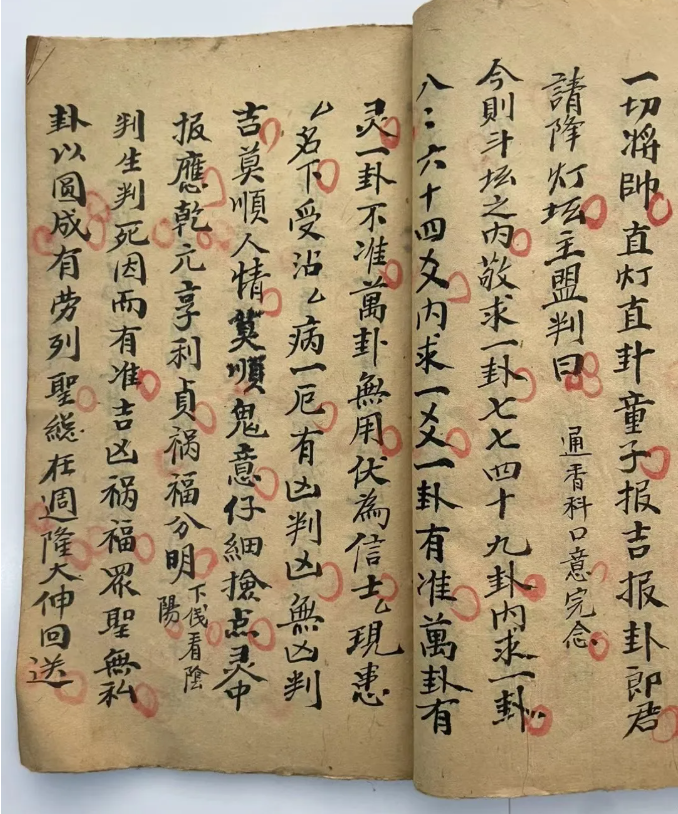 一切将帥 直灯直卦童子报吉报卦郎君
請降灯坛主盟判曰 通香科口意完念
今則斗坛之内敬求一卦七七四十九卦内求一卦
八〻六十四爻内求一爻一卦有准萬卦有
灵一卦不准萬卦無用伏為信士厶現患
厶名下受沾厶病一厄有凶判凶無凶判
吉莫順人情莫順鬼意仔細撿点灵中
报應乾元享利貞祸福分明 下伐看陰
陽
判生判死因而有准吉凶祸福眾聖無私
卦以圓成有劳列聖總在週隆大伸回送